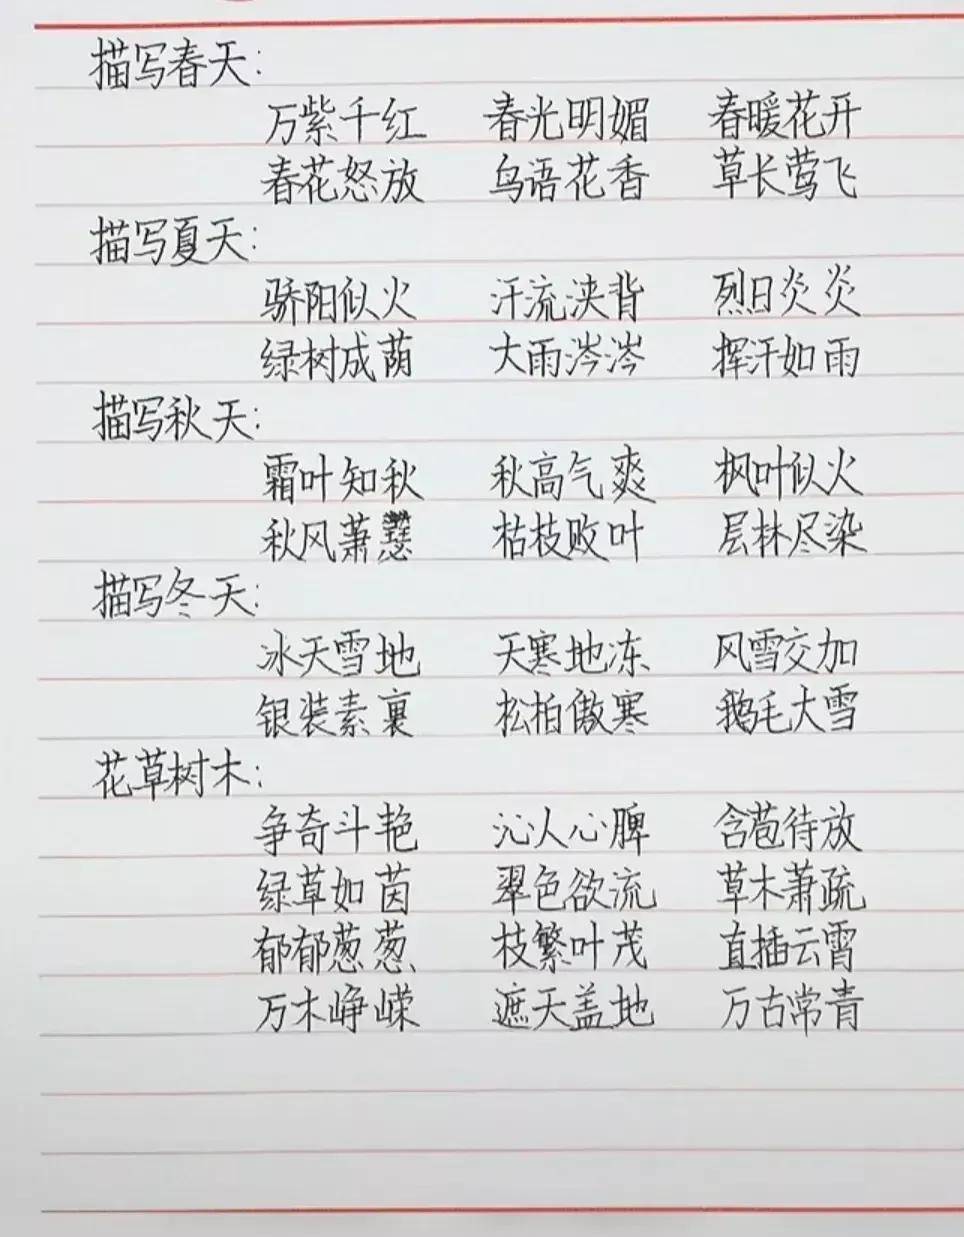 描写春天：
万紫千红 春光明媚 春暖花开
春花怒放 鸟语花香 草长莺飞
描写夏天：
骄阳似火 汗流浃背 烈日炎炎
绿树成荫 大雨涔涔 挥汗如雨
描写秋天：
霜叶知秋 秋高气爽 枫叶似火
秋风萧 枯枝败叶 层林尽染
描写冬天：
冰天雪地 天寒地冻 风雪交加
银装素裹 松柏傲寒 鹅毛大雪
花草树木：
争奇斗艳 沁人心脾 含苞待放
绿草如茵 翠色欲流 草木萧疏
郁郁葱葱 枝繁叶茂 直插云霄
万木峥嵘 遮天盖地 万古常青